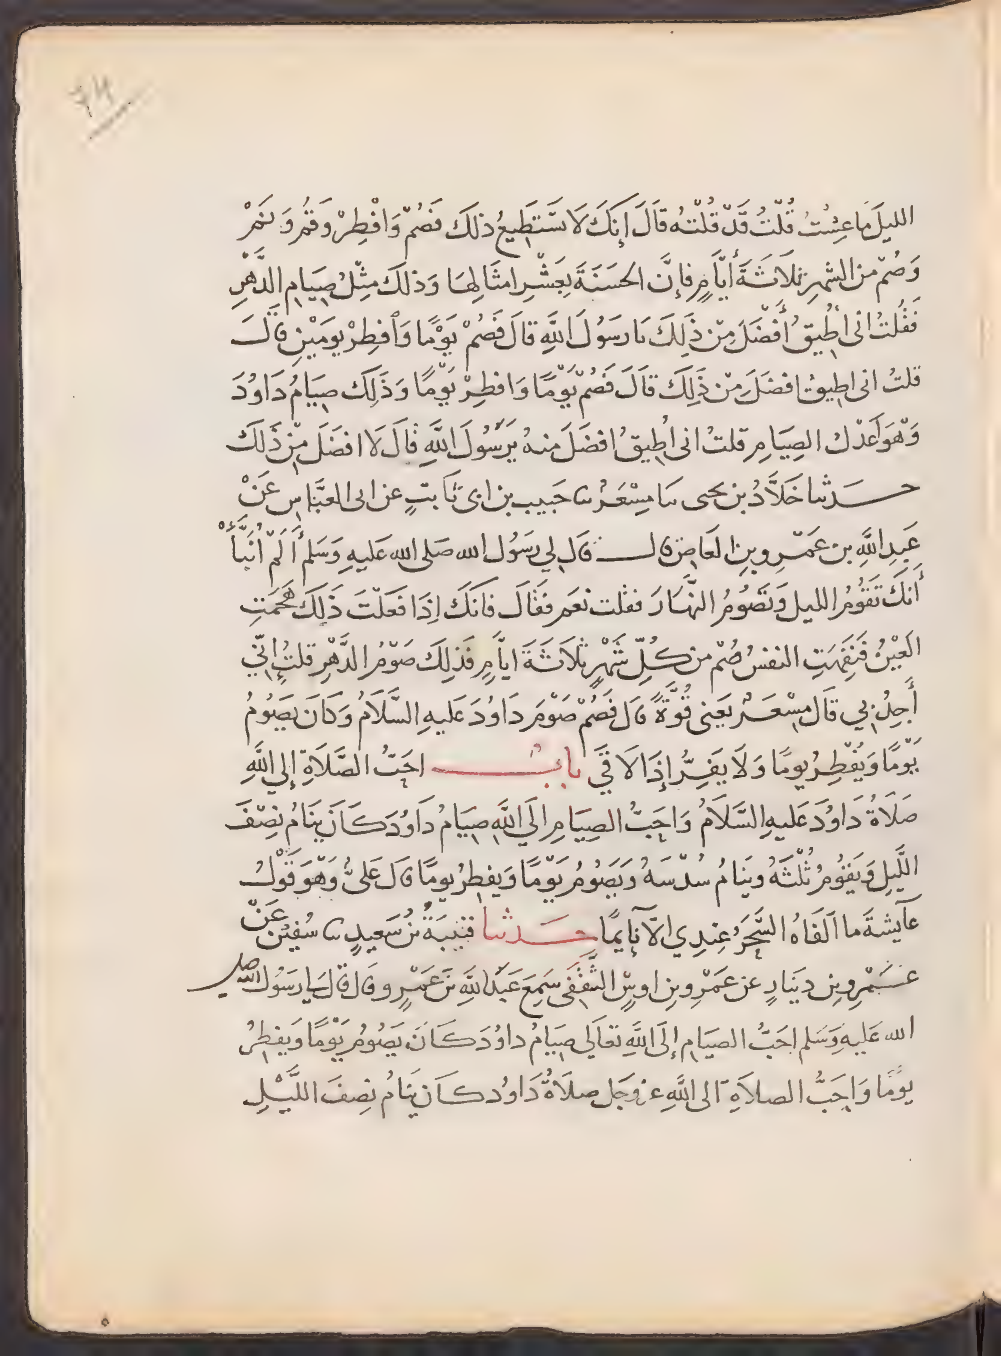 74
الليلَ مَا عِشْتُ قُلْتُ قَدْ قُلْتُهُ قَالَ إِنَكَ لَا تَسْتَطِيعُ ذلكَ فَصُمْ وَافْطِرْ وَقُمْ وَنَمْ
وَصُمْ من الشهرِ ثلَاثَةَ أَيَّامٍ فإنَّ الحسَنَةَ بِعَشْرِ امثَالِهَا وَذلكَ مِثْلُ صِيَامِ الدَّهْرِ
فَقُلتُ انى اُطِيقُ أَفْضَلَ مِنْ ذَلِكَ يَا رَسُولَ اللَّهِ قالَ فَصُمْ يَوْمًا وَأفطِرْ يومَيْنِ قَالَ
قلتُ انى اطيقُ افضَلَ مِنْ ذَلِكَ قالَ فَصُمْ يَوْمًا وَافطِرْ يَوْمًا وَذَلِكَ صِيَامُ دَاوُدَ
وَهْوَ أَعْدَلُ الصِيَامِ قلتُ انى اُطِيقُ افضَلَ منهُ يَرَسُولَ اللَّهِ قالَ لَا افضَلَ مِنْ ذَلكَ
حدثنا خَلَّادُ بن يحيى نا مِسْعَرٌ نا حَبيب بن ابى ثَابتٍ عن ابى العبَّاسِ عَنْ
عَبدِ اللَّهِ بن عَمْرِو بنِ العَاصِ قال قَال لِي رَسُول الله صَلى الله عَليهِ وَسَلم أَلَمْ اُنَبَّأْ
أَنكَ تَقُومُ الليل وَتَصُومُ النهَارَ فقلت نعَم فقالَ فانَكَ إِذَا فعَلْتَ ذَلكَ هَجَمَتِ
العَيْنُ وَنَفِهَتِ النفسُ صُمْ من كلِّ شَهْرٍ ثلَاثَةَ ايَّامٍ فذلِكَ صَوْمُ الدَّهْرِ قلتُ إِنِّي
أَجِدُ بِي قَالَ مِسْعَرٌ يَعنى قُوَّةً قَالَ فَصُمْ صَوْمَ دَاوُدَ عَليهِ السَّلَامُ وَكَانَ يَصُومُ
يَوْمًا وَيُفْطِرُ يومًا وَلَا يَفِرُّ إِذَا لَاقَى بابٌ احَبُّ الصَّلَاةِ إِلَى اللَّهِ
صَلَاةُ دَاوُدَ عَليهِ السَّلَامُ وَاحَبُّ الصِيَامِ الَى اللَّهِ صِيَامُ دَاوُدَ كَانَ ينَامُ نِصْفَ
اللَّيلِ وَيَقُومُ ثُلْثَهُ وينَامُ سُدْسَهُ وَيَصُومُ يَوْمًا وَيفطِرُ يومًا قَالَ عَلىٌّ وَهْوَ قَوْلُ
عآيشةَ ما ألفَاهُ السَّحَرُ عِنْدِي الّا نآيمًا حدثنا قتيبَةُ بْنُ سَعيدٍ نا سُفين عَنْ
عَمْرِو بن دِينَارٍ عن عَمْرِو بنِ اوسٍ الثَّقَفى سَمِعَ عَبْدَ اللَّهِ بْنَ عَمْرٍو قَال قالَ لي رَسُولُ الله صلى
الله عَليهِ وَسَلم احَبُّ الصيَام إِلَى اللَّهِ تعَالَى صِيَامُ داوُدَ كَانَ يَصُومُ يَوْمًا وَيفطِرُ
يومًا وَاحَبُّ الصلاَةِ الى اللَّهِ عز وجَل صلَاةُ دَاوُد كَان يَنَامُ نِصفَ اللَّيْلِ